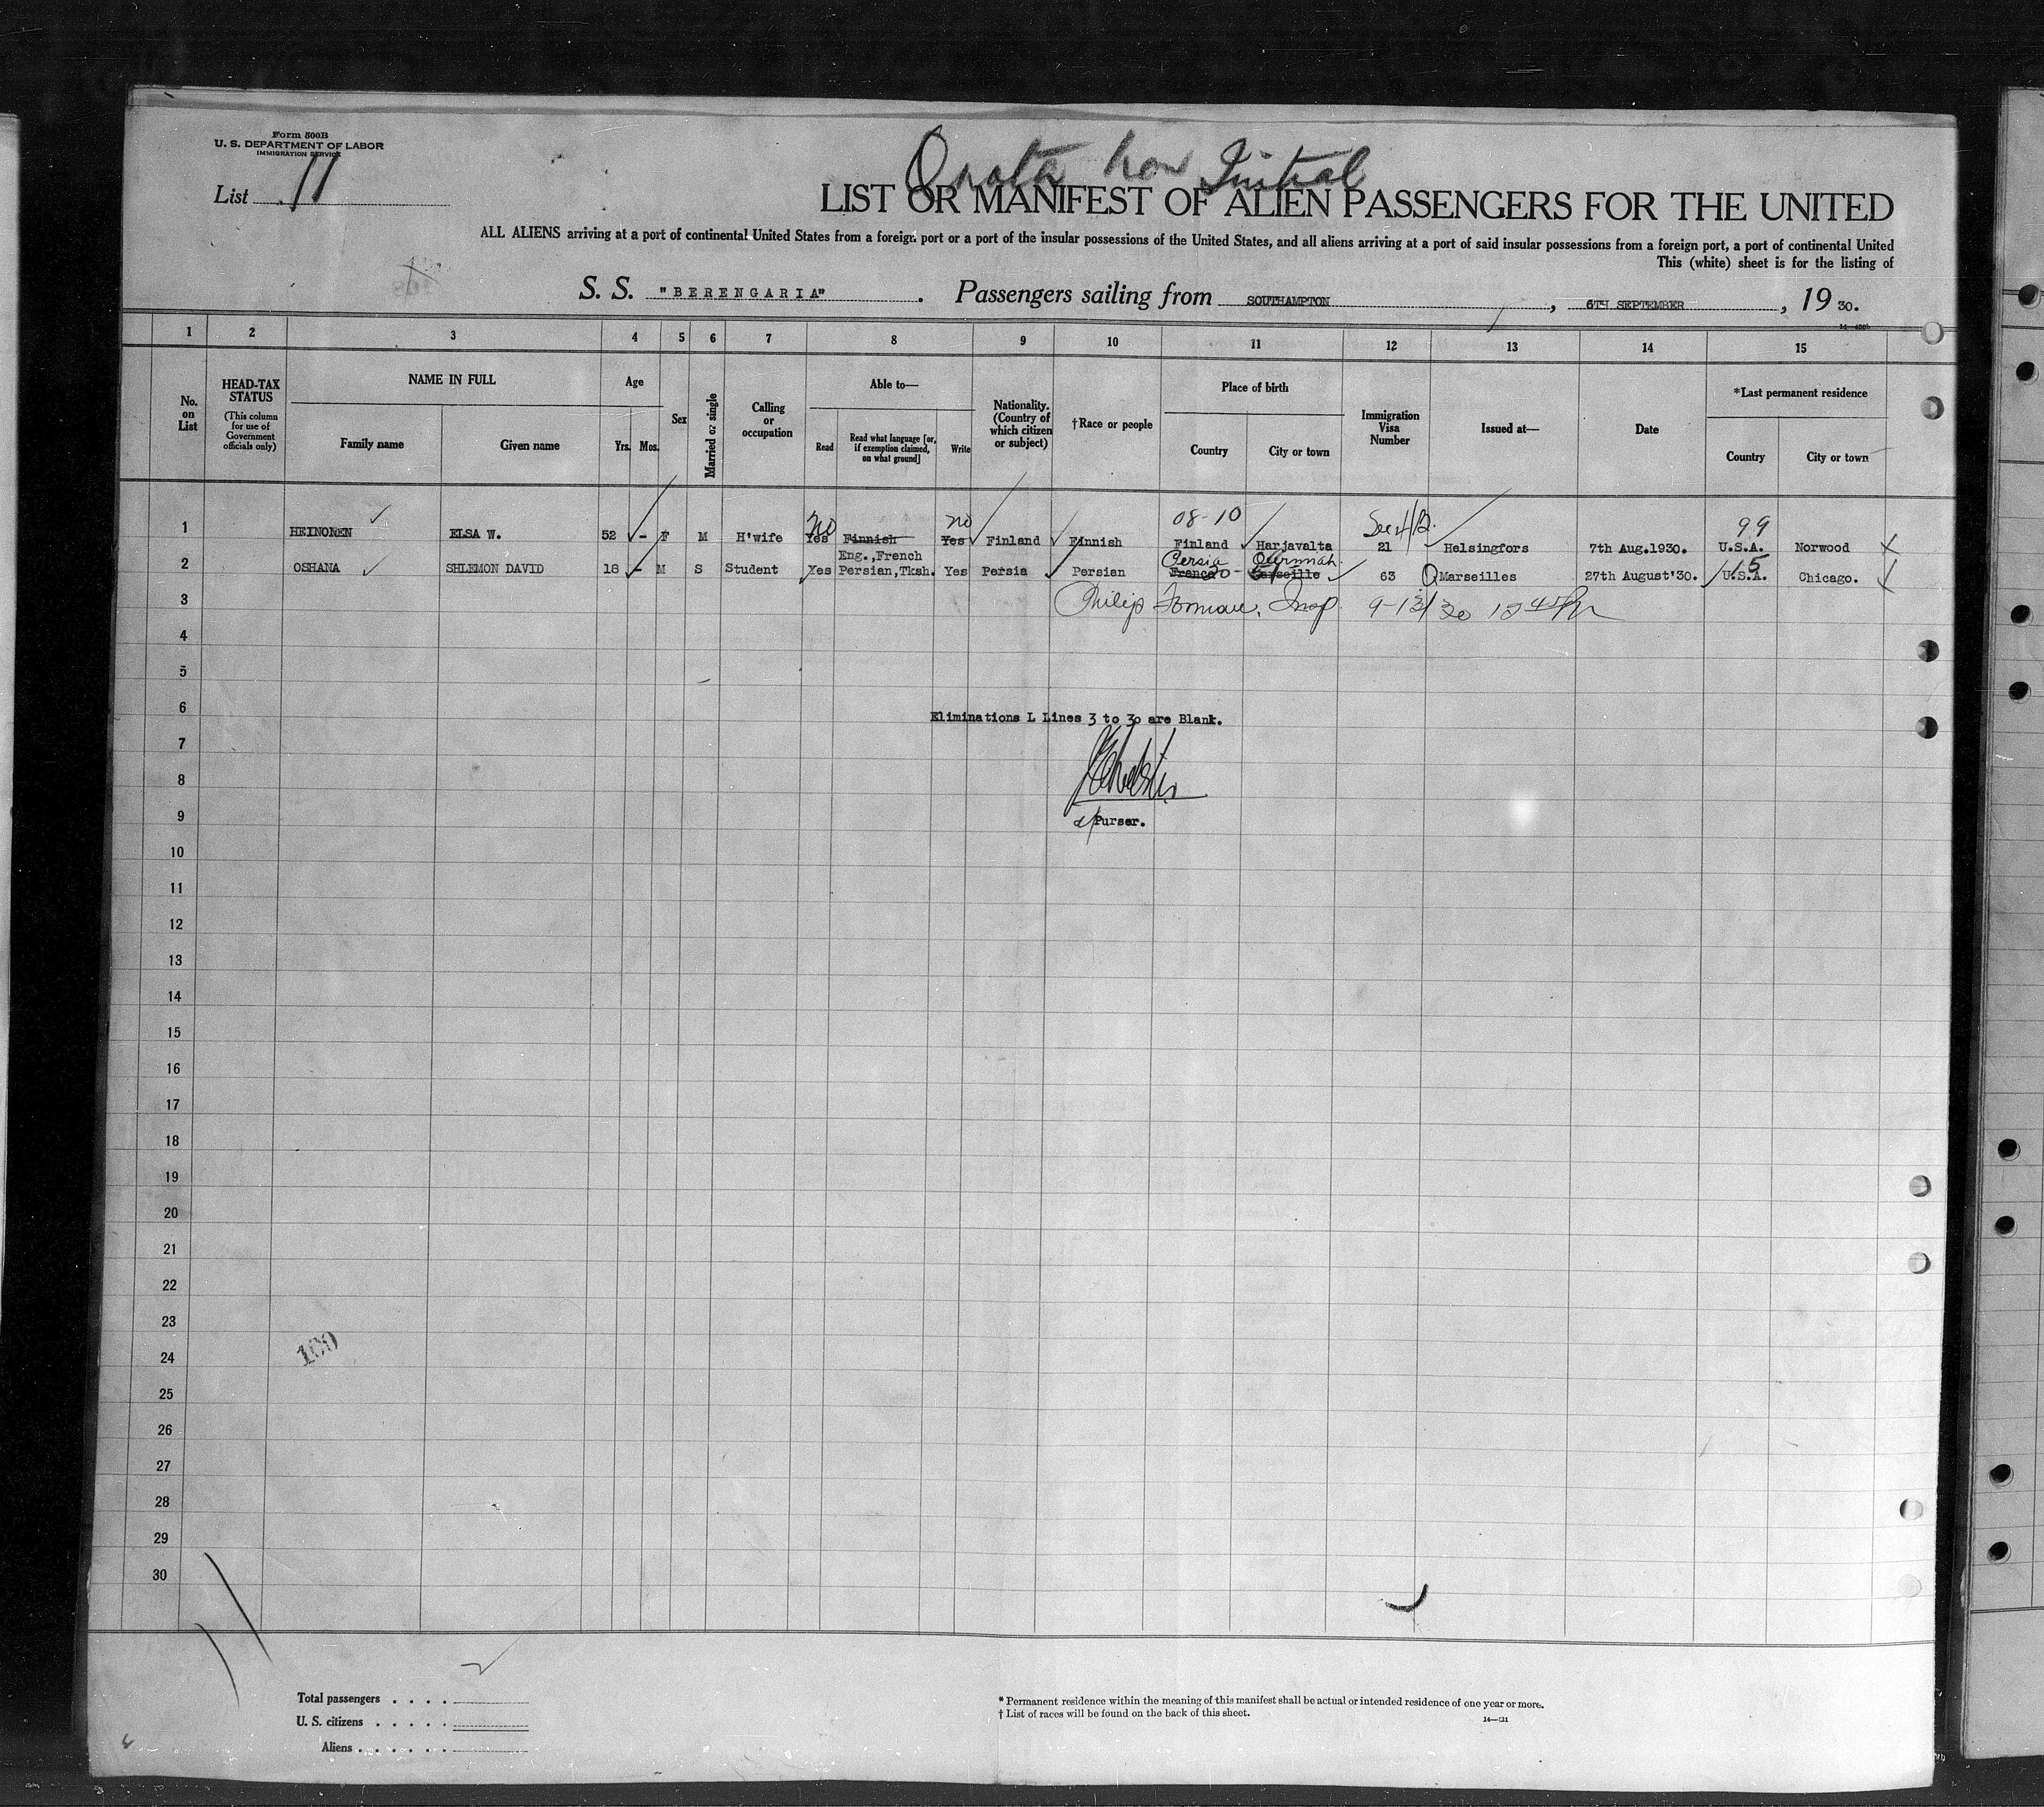 Form 500B
U. S. DEPARTMENT OF LABOR
IMMIGRATION SERVICE
List 11
Quota Non Initial
LIST OR MANIFEST OF ALIEN PASSENGERS FOR THE UNITED
ALL ALIENS arriving at a port of continental United States from a foreign port or a port of the insular possessions of the United States, and all aliens arriving at a port of said insular possessions from a foreign port, a port of continental United
This (white) sheet is for the listing of
S. S. "BERENGARIA". Passengers sailing from SOUTHAMPTON, 6TH SEPTEMBER, 19 30.
1 2 3 4 5 6 7 8 9 10 11 12 13 14 15
No. on List
HEAD-TAX STATUS
(This column for use of Government officials only)
NAME IN FULL
Family name
Given name
Age
Yrs. Mos.
Sex
Married or single
Calling or occupation
Able to—
Read
Read what language [or, if exemption claimed, on what ground]
Write
Nationality. (Country of which citizen or subject)
†Race or people
Place of birth
Country
City or town
Immigration Visa Number
Issued at—
Date
*Last permanent residence
Country
City or town
No no 08-10 See 99
1 HEINONEN ELSA W. 52 - F M H'wife Yes Finnish Yes Finland Finnish Finland Harjavalta 21 Helsingfors 7th Aug.1930. U.S.A. Norwood
Eng.,French Persia 15
2 OSHANA SHLEMON DAVID 18 - M S Student Yes Persian,Tksh. Yes Persia Persian France Marseille 63 Marseilles 27th August'30. U.S.A. Chicago.
3 Philip Insp. 9-12/30 12 45 PM
4
5
6
Eliminations L Lines 3 to 30 are Blank.
7
8
9
Purser.
10
11
12
13
14
15
16
17
18
19
20
21
22
23
100
24
25
26
27
28
29
30
Total passengers . . . .
U. S. citizens . . . . .
Aliens . . . . . .
* Permanent residence within the meaning of this manifest shall be actual or intended residence of one year or more.
† List of races will be found on the back of this sheet.